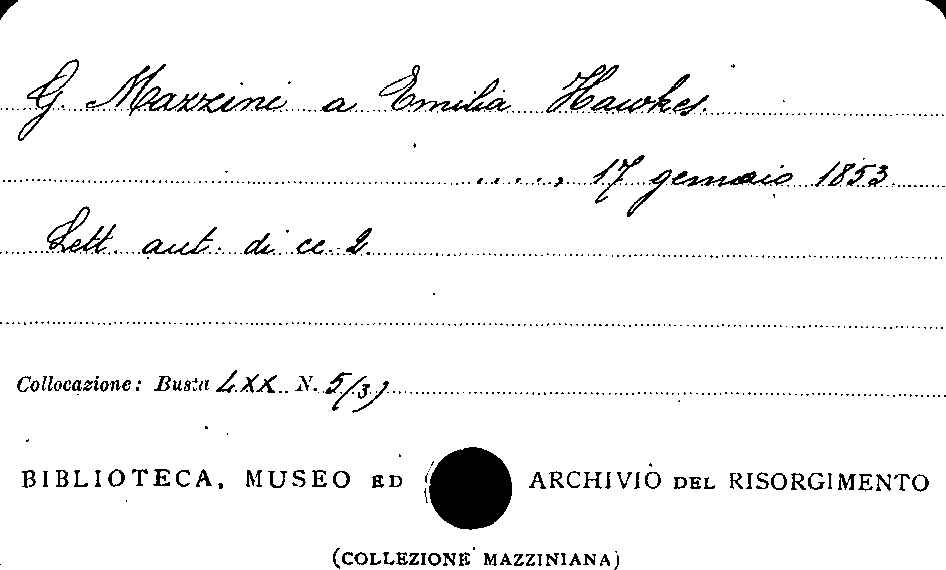 G. Mazzini a Emilia Hawkes.
...., 17 gennaio 1853
Lett. aut. di cc. 2.
Collocazione: Busta LXX N. 5/3)
BIBLIOTECA, MUSEO ED ARCHIVIO DEL RISORGIMENTO
(COLLEZIONE MAZZINIANA)